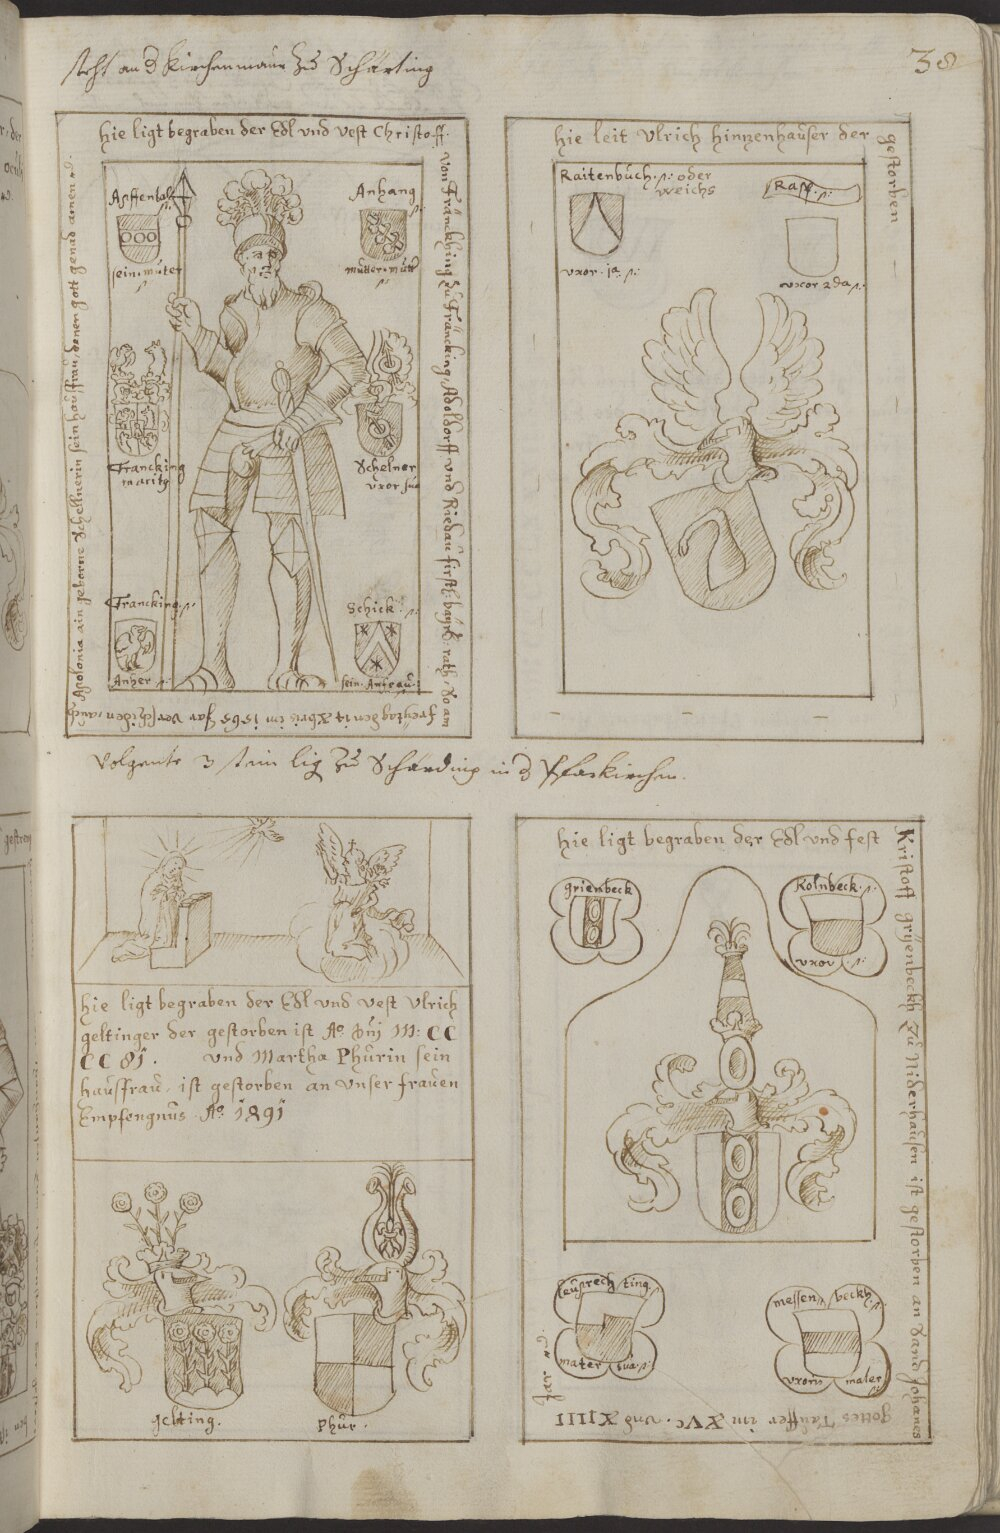 steht an d Kirchenmaur Zu Schärting
38
Hie ligt begraben der Edl und vest Christoff
von Fränckhing zu Fräncking Adoldorff und Riedau fürstl: bayrd rath, So am
freytag den 14 Xbris im 1565 Jar verschiden, auch
Apolonia ain geborne Schellnerin sein hausfrau, denen gott genad amen
Apffental
sein muter
Anhang
mutter mutt
Francking
marit9
Schelner
uxor sua
Francking
Anher
Schick
sein Anfrau
Hie leit Ulrich Hinzenhauser der
gestorben
Raitenbuch oder
weichs
uxor 1a
Rasp
uxor 2da
Volgente 3 stain lig zu Schärding in d Pfarkirchen.
Hie ligt begraben der Edl und vest Ulrich
geltinger der gestorben ist Ao M: CC
CC 81. und Martha Phürin sein
hausfrau, ist gestorben an unser frauen
Empfengnus Ao 1491
gelting.
Phür.
Hie ligt begraben der Edl und fest
Kristoff gryenbeckh Zu Niderhausen ist gestorben an Sand Johanes
gottes Tauffer im XVc. und XIIII
Jar
grienbeck
Kolnbeck
uxor
leuprech ting
mater sua
messen beckh
uxoris mater